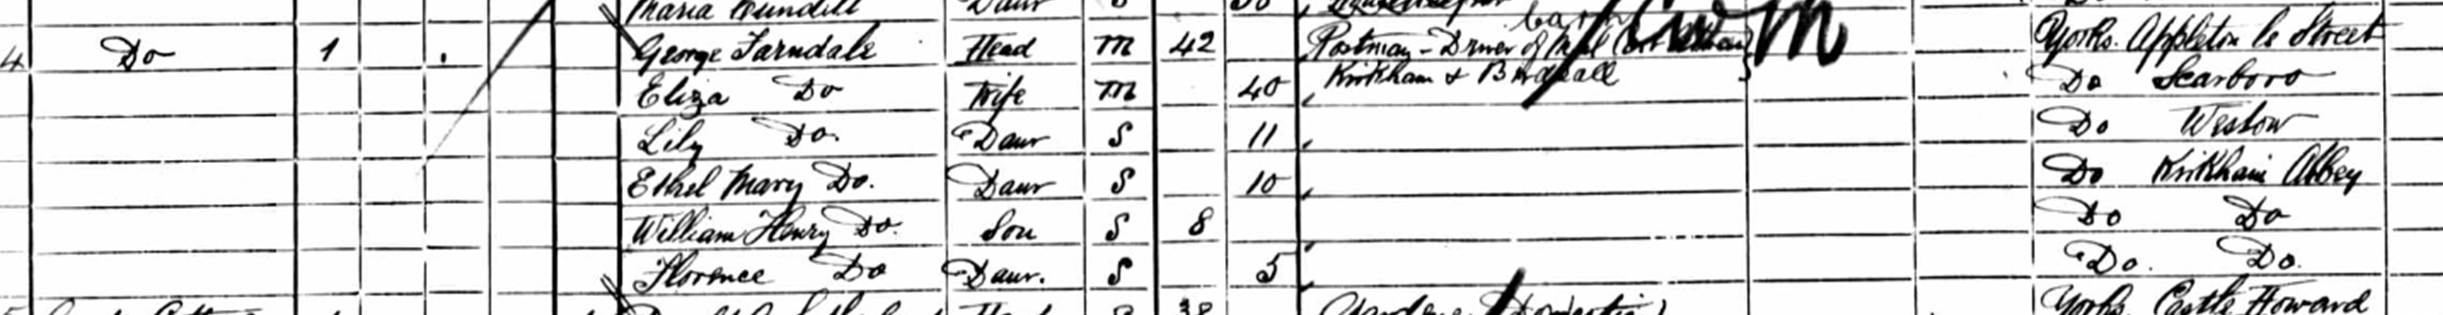 Maria Daur S
4 Do 1 George Farndale Head M 42 Postman - Driver of Mail Cart M Yorks. Appleton le Street
Eliza Do Wife M 40 Kirkham & Birdsall Do Scarboro
Lily Do. Daur S 11 Do Westow
Ethel Mary Do. Daur S 10 Do Kirkham Abbey
William Henry Do. Son S 8 Do Do
Florence Do Daur. S 5 Do. Do.
Head S 38 Domestic Yorks. Castle Howard